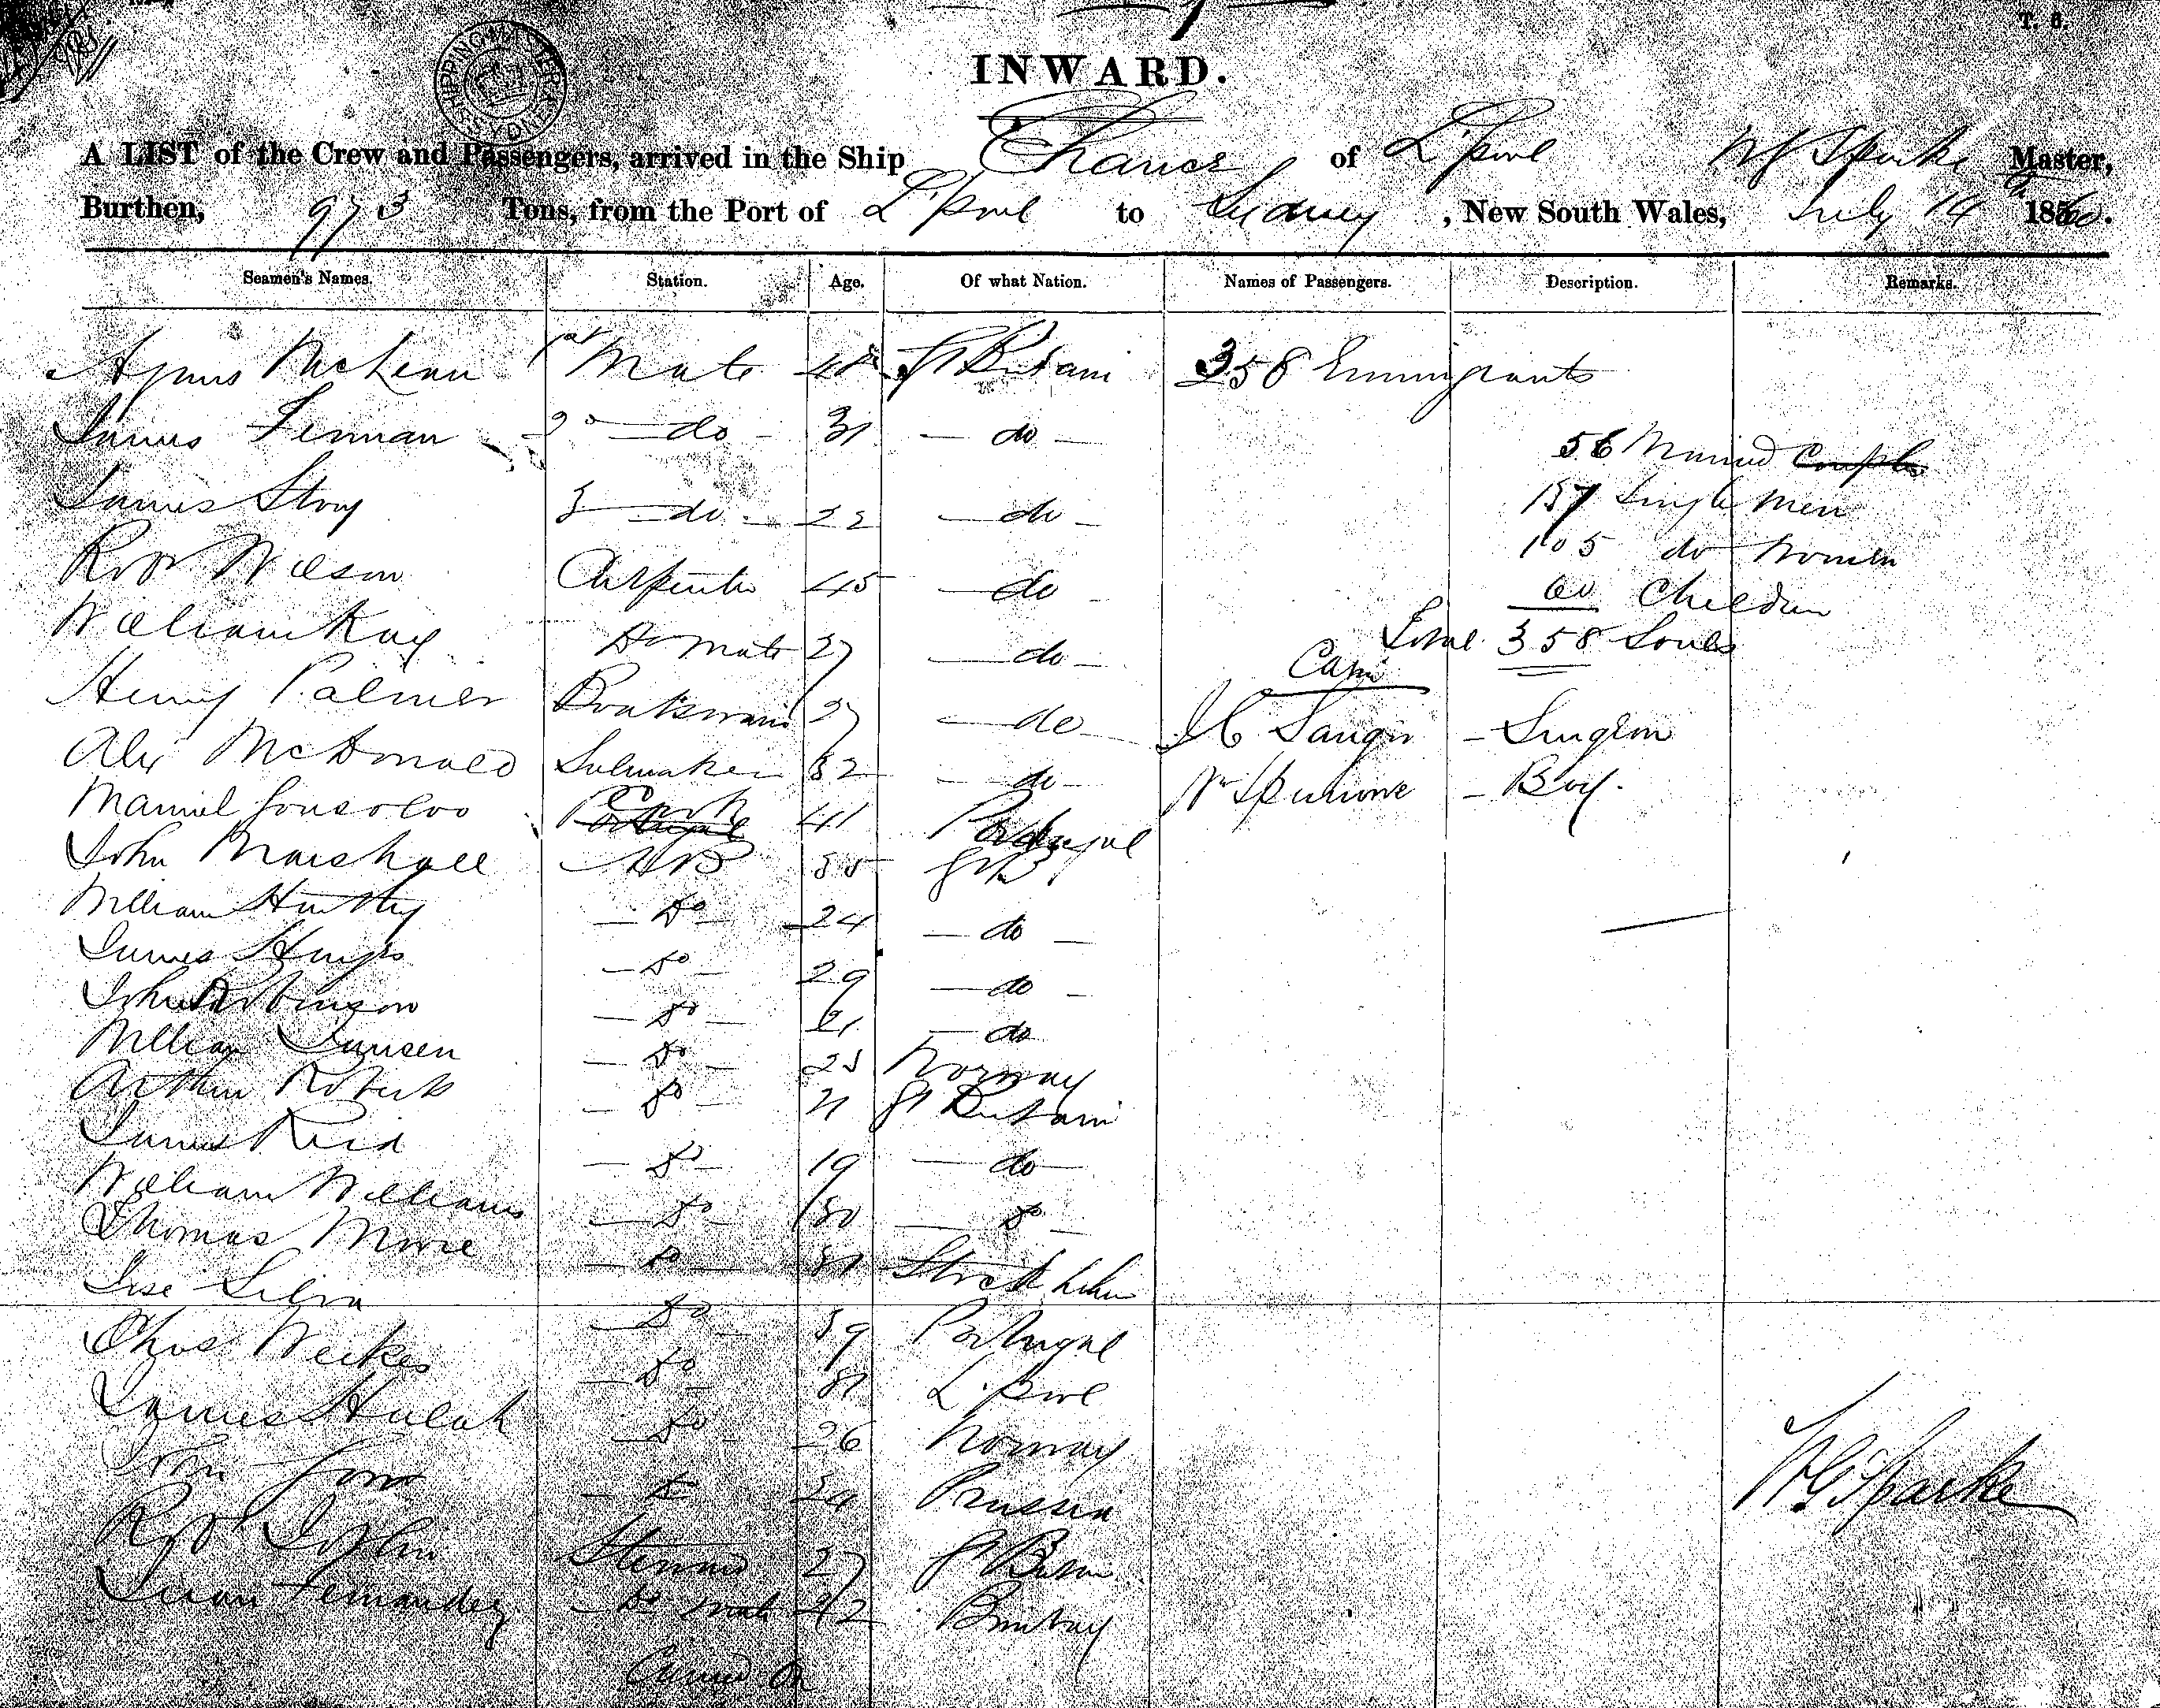 T. 6.
SHIPPING MASTER'S SYDNEY
INWARD.
A LIST of the Crew and Passengers, arrived in the Ship Chance of L'pool W G Sparke Master,
Burthen, 973 Tons, from the Port of L'pool to Sydney, New South Wales, July 14 1860.
Seamen's Names. Station. Age. Of what Nation. Names of Passengers. Description. Remarks.
Agnus McLean 1st Mate Gt Britain 358 Emmigrants
James Fennan 2 do 31 do
56 Married Couples
James Story 3 do 22 do
157 Single Men
105 do Women
Robt Wilson Carpenter 45 do
60 Children
William Kay Do Mate 27 do
Total 358 Souls
Cabin
Henry Palmer Boatswain 27 do J C Sanger - Surgeon
Alex McDonald Sailmaker 32 do Boy.
Manuel Gonsolvo Cook 41 Portugal
John Marshall AB 35 G B
William Huntley Do 24 do
James Do 29 do
John Robinson Do 21 do
William Jansen Do Norway
Arthur Roberts Do 21 Gt Britain
James Reid Do 19 do
William Williams Do 30 Do
Thomas Moore Do Stockholm
Jose Silva Do 39 Portugal
Chas Weekes Do 31 L'pool
James Do 26 Norway
John Do 24 Prussia
W G Sparke
Robt Steward 27 Gt Britain
Juan Fernandez Do mate 42 Bombay
Carried On